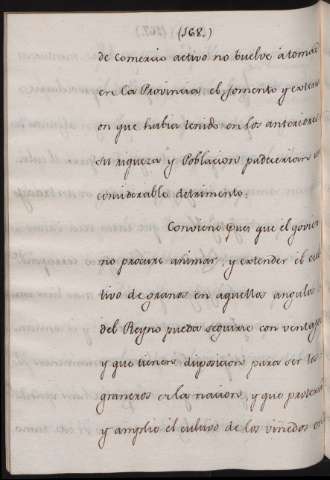 (168.)
de comercio activo no buelve à tomar
en la Provincia el fomento y exten
on que habia tenido en los anteriores
su riqueza y Poblacion padecerian un
considerable detrimento.
Conviene pues que el govier
no procure animar, y extender el cul
tivo de granos en aquellos angulos
del Reyno pueda seguirse con ventaja
y que tienen disposicion para ser los
graneros de la nacion, y que proteja
y amplie el cultivo de los viñedos en